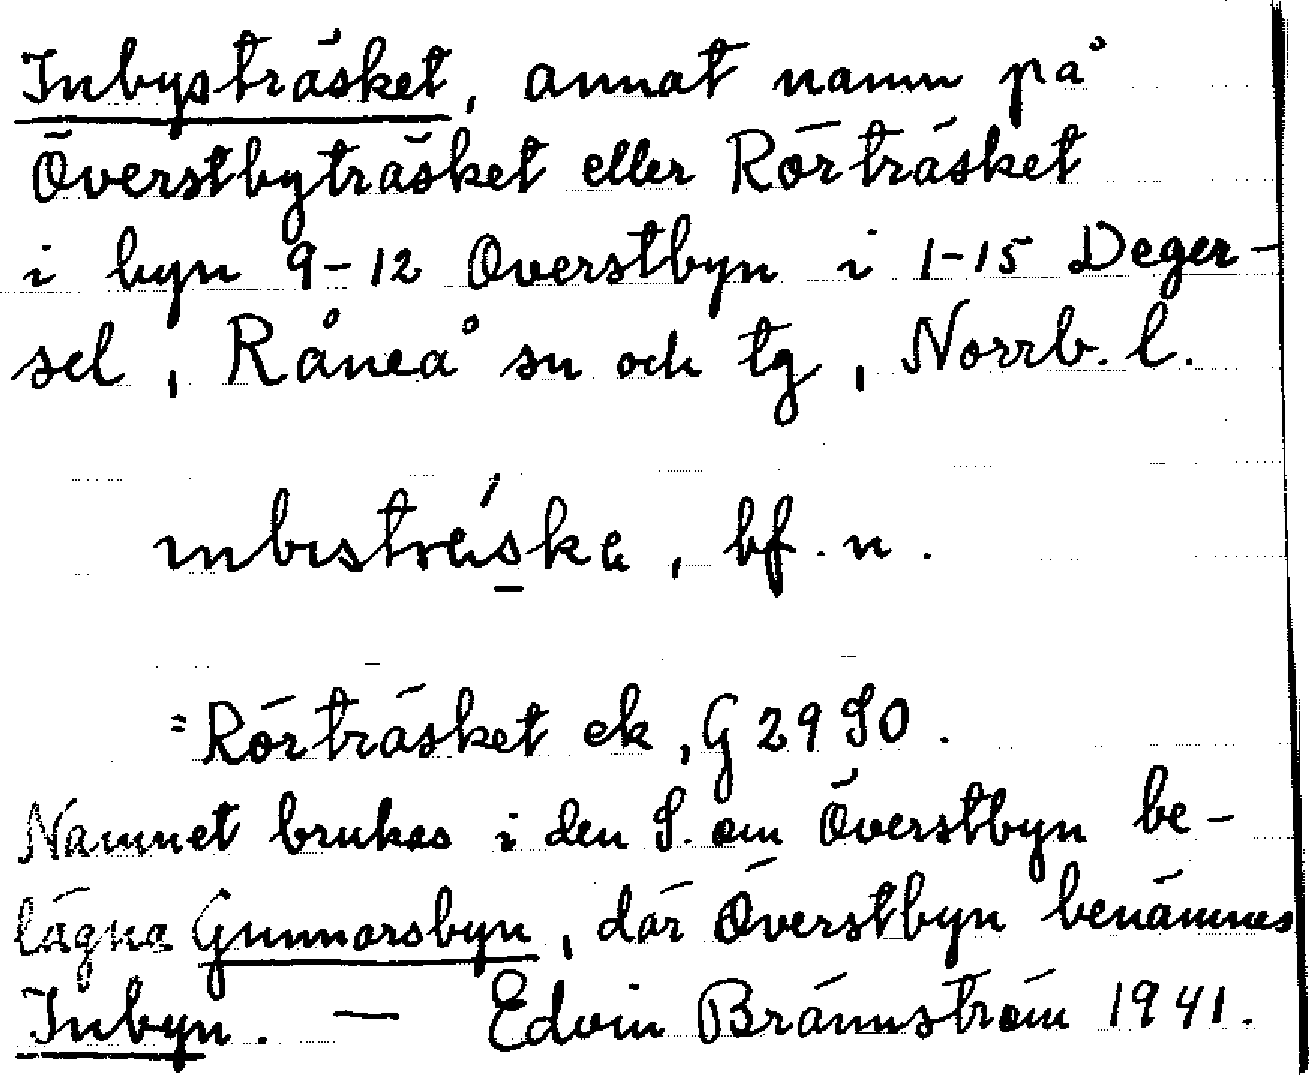 Inbyträsket, annat namn på
Överstbyträsket eller Rörträsket
i byn 9-12 Överstbyn i 1-15 Deger-
sel, Råneå sn och tg, Norrb. l.
bf. n.
= Rörträsket ek, G 2990.
Namnet brukas i den S. om Överstbyn be-
lägna Gunnarsbyn, där Överstbyn benämnes
Inbyn. — Edvin Brännström 1941.